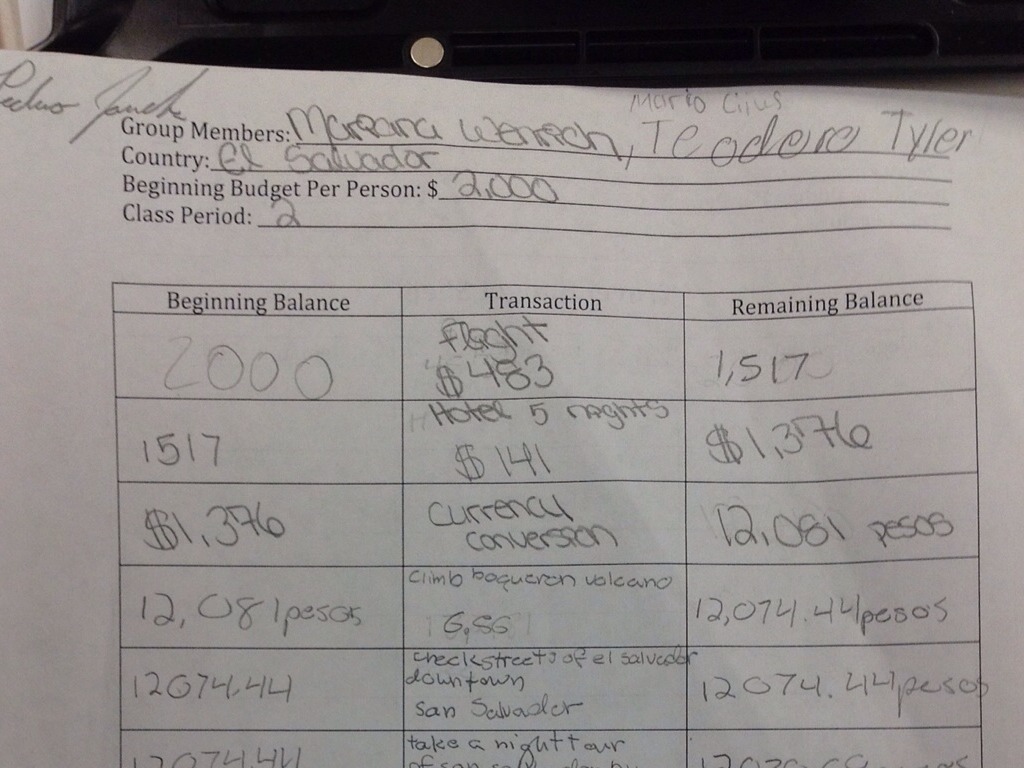 Pedro
Mario Cijus
Group Members: Mareana Wenrech, Teodoro Tyler
Country: El Salvador
Beginning Budget Per Person: $ 2,000
Class Period: 2
Beginning Balance Transaction Remaining Balance
2000 flaght $483 1,517
1517 Hotel 5 naghts $141 $1,376
$1,376 currency conversion 12,081 pesos
12,081pesos climb boqueron volcano 6,56 12,074.44pesos
12074.44 check streets of el salvador downtown San Salvador 12074.44pesos
12074.44 take a night tour